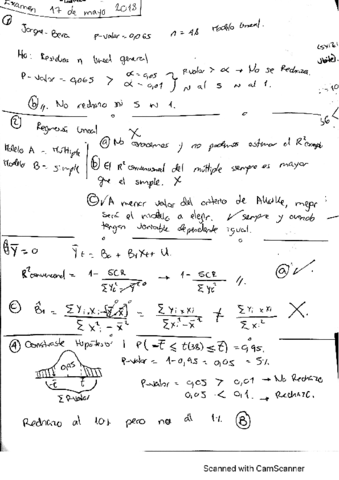 Examen 17 de mayo 2018
① Jarque-Bera P-valor = 0,065 n = 48 Modelo lineal.
Ho: Residuos n
P-valor = 0,065 > α = 0,05
α = 0,01 } P.valor > α → No se Rechaza
N al 5 N al 1.
b// No rechazo ni 5 ni 1.
② Regresión lineal
Modelo A = múltiple
Modelo B = simple
a) No conocemos y no podemos estimar el R²
b) El R² convencional del múltiple siempre es mayor
que el simple. X
c) ✓ A menor valor del criterio de Akaike, mejor
será el modelo a elegir. ✓ siempre y cuando
tengan variable dependiente igual.
Ȳ = 0 Ȳt = B0 + B1Xt + U.
R² convencional = 1 - SCR → 1 - SCR
a) ✓
④ Contraste Hipótesis P(-t ≤ t(38) ≤ t) = 0,95
P-valor = 1 - 0,95 = 0,05 = 5%
0,95
P-valor = 0,05 > 0,01 → No Rechazo
0,05 < 0,1. → Rechazo.
-t t
Σ P-valor
Rechazo al 10% pero no al 1% Ⓑ
Scanned with CamScanner